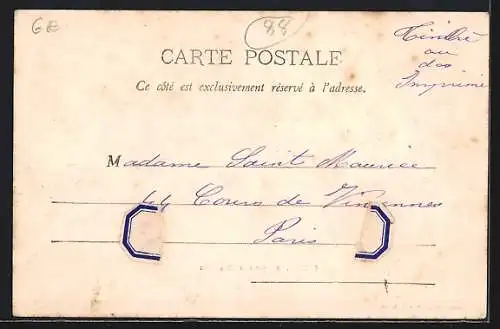 GE
88
Timbré
au
dos
Imprimé
CARTE POSTALE
Ce côté est exclusivement réservé à l'adresse.
Madame Saint Maurice
44 Cours de Vincennes
Paris